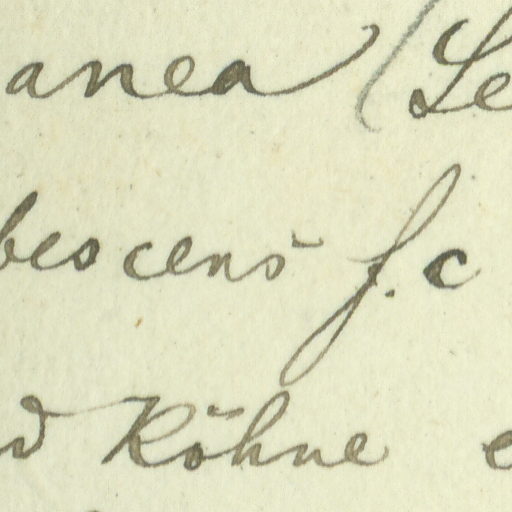 anea (Le
bescens f. c
d Köhne e